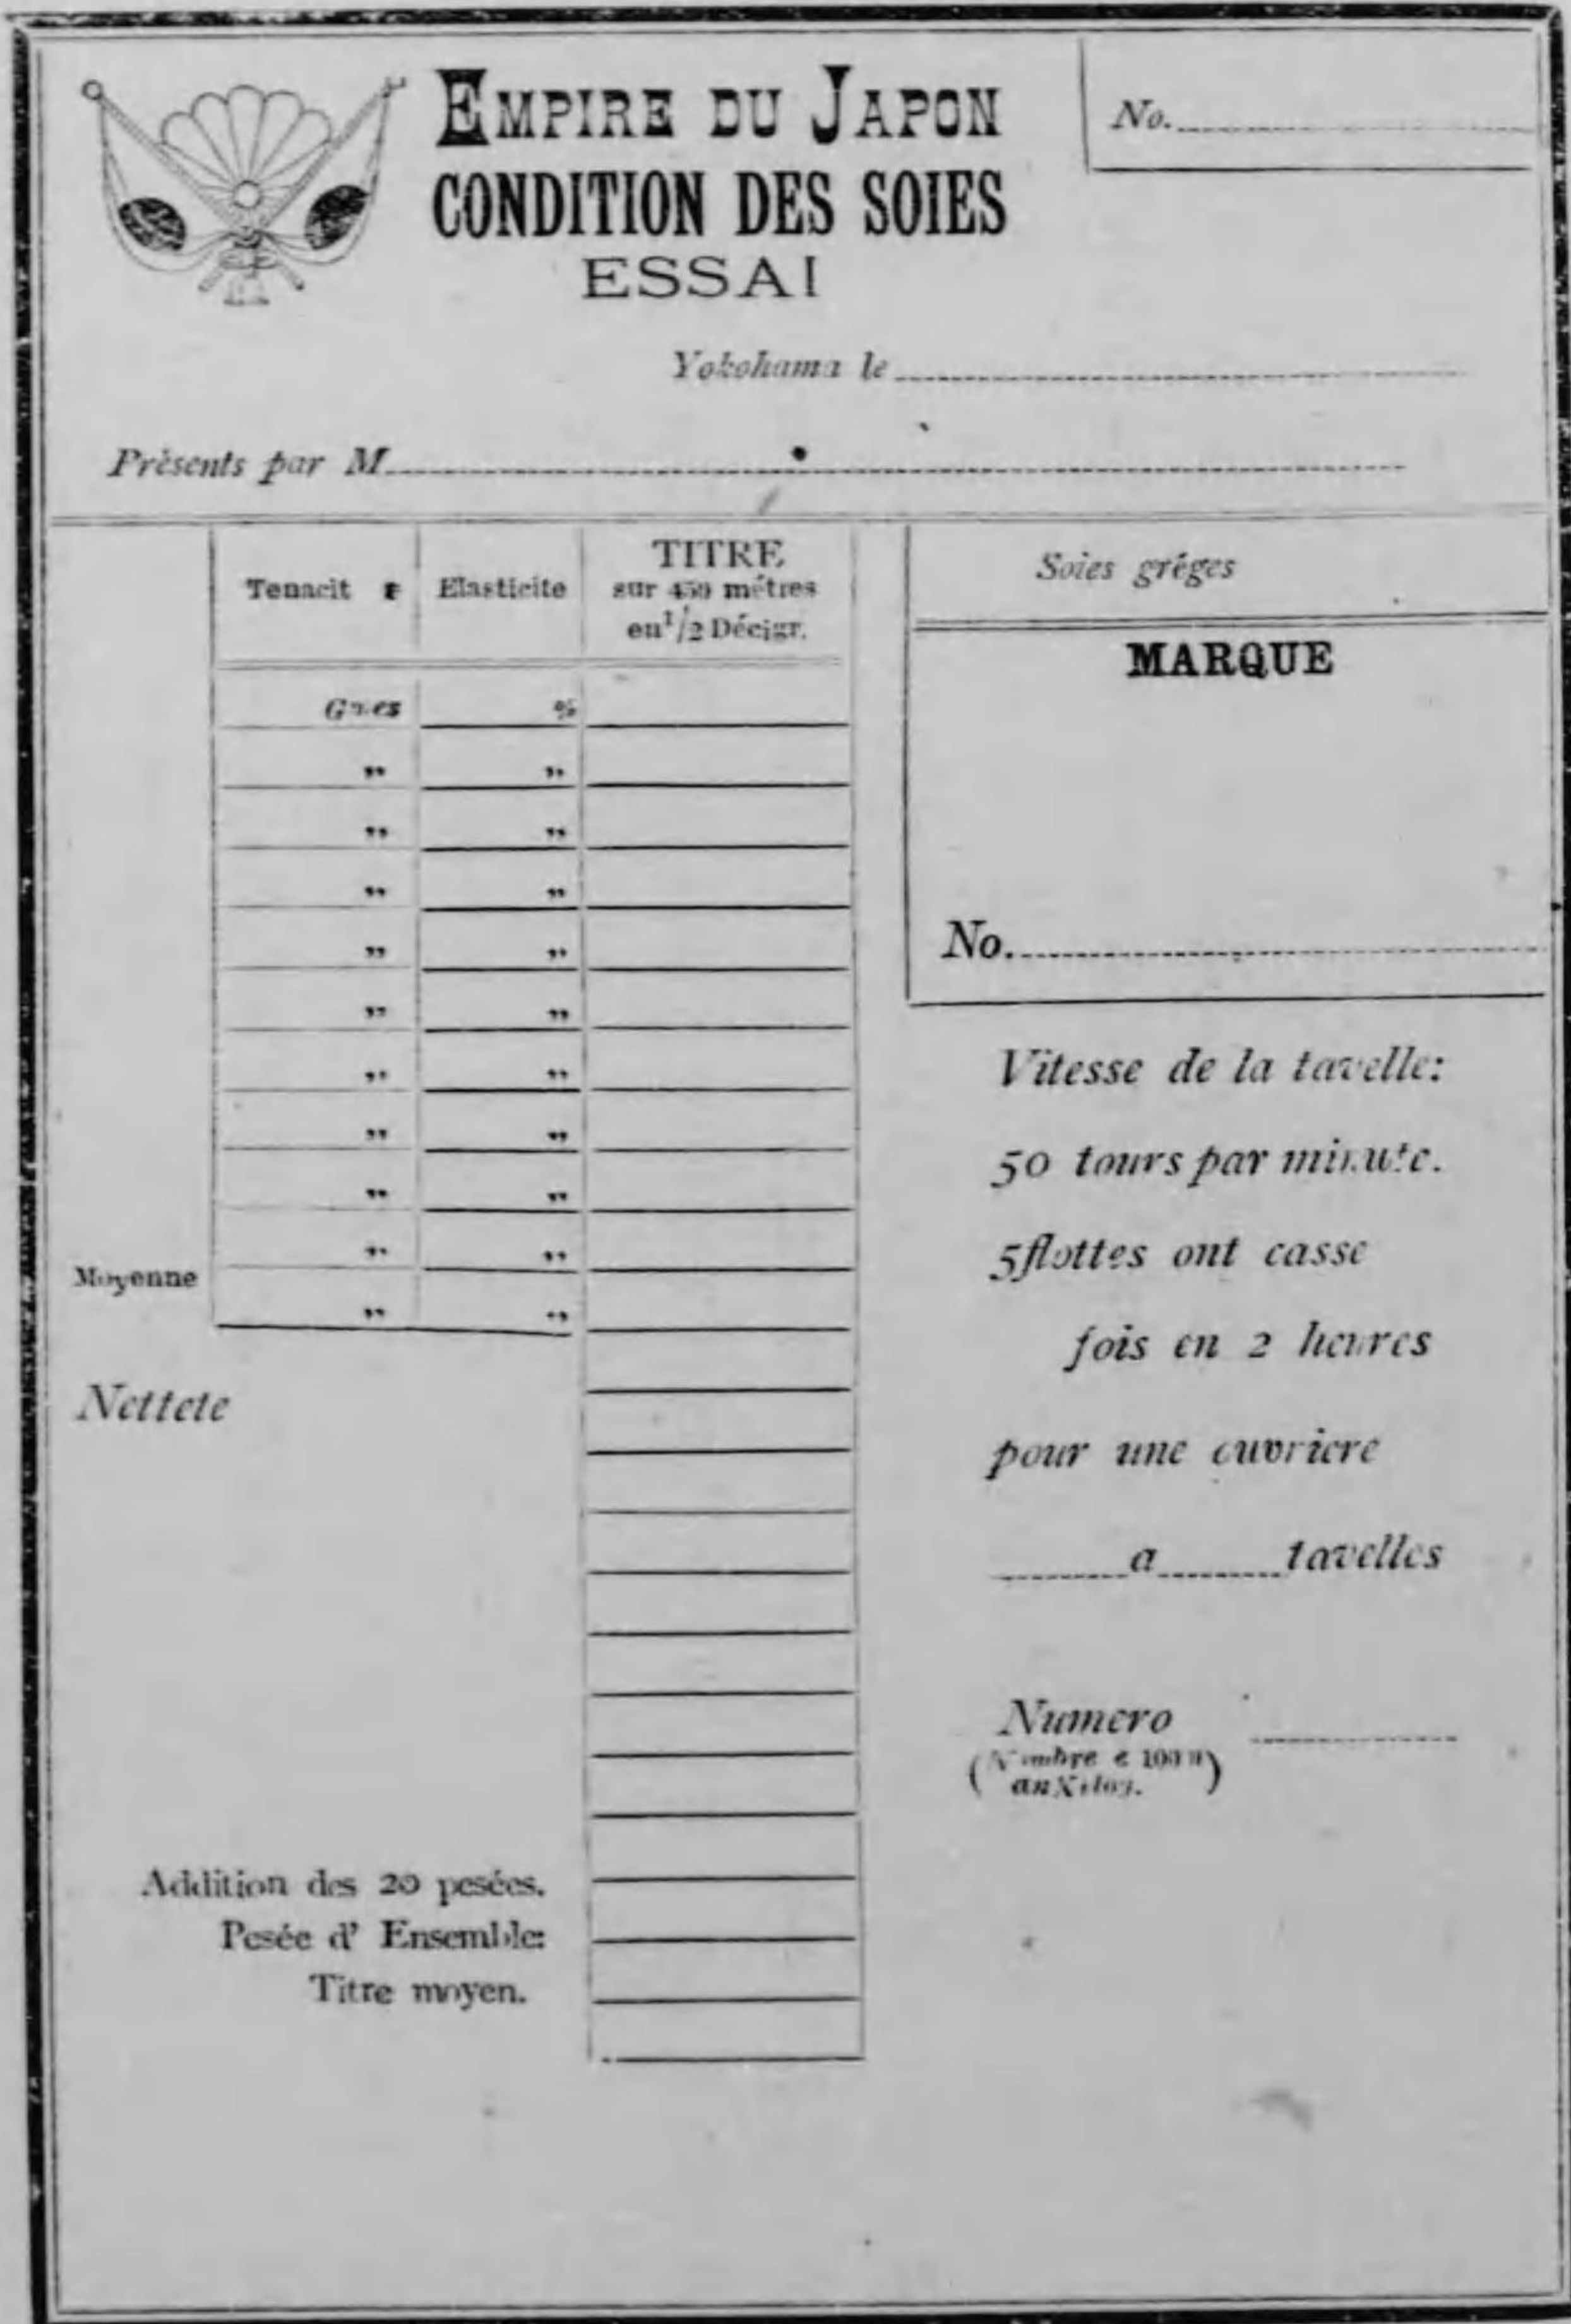 EMPIRE DU JAPON
CONDITION DES SOIES
ESSAI
No.
Yokohama le
Présents par M
Tenacit
Elasticite
TITRE
sur 450 métres
en 1/2 Décigr.
%
„ „
„ „
„ „
„ „
„ „
„ „
„ „
„ „
„ „
Moyenne
„ „
Nettete
Addition des 20 pesées.
Pesée d' Ensemble:
Titre moyen.
Soies gréges
MARQUE
No.
Vitesse de la tavelle:
50 tours par minute.
5 flottes ont casse
fois en 2 heures
pour une ouvriere
a tavelles
Numero